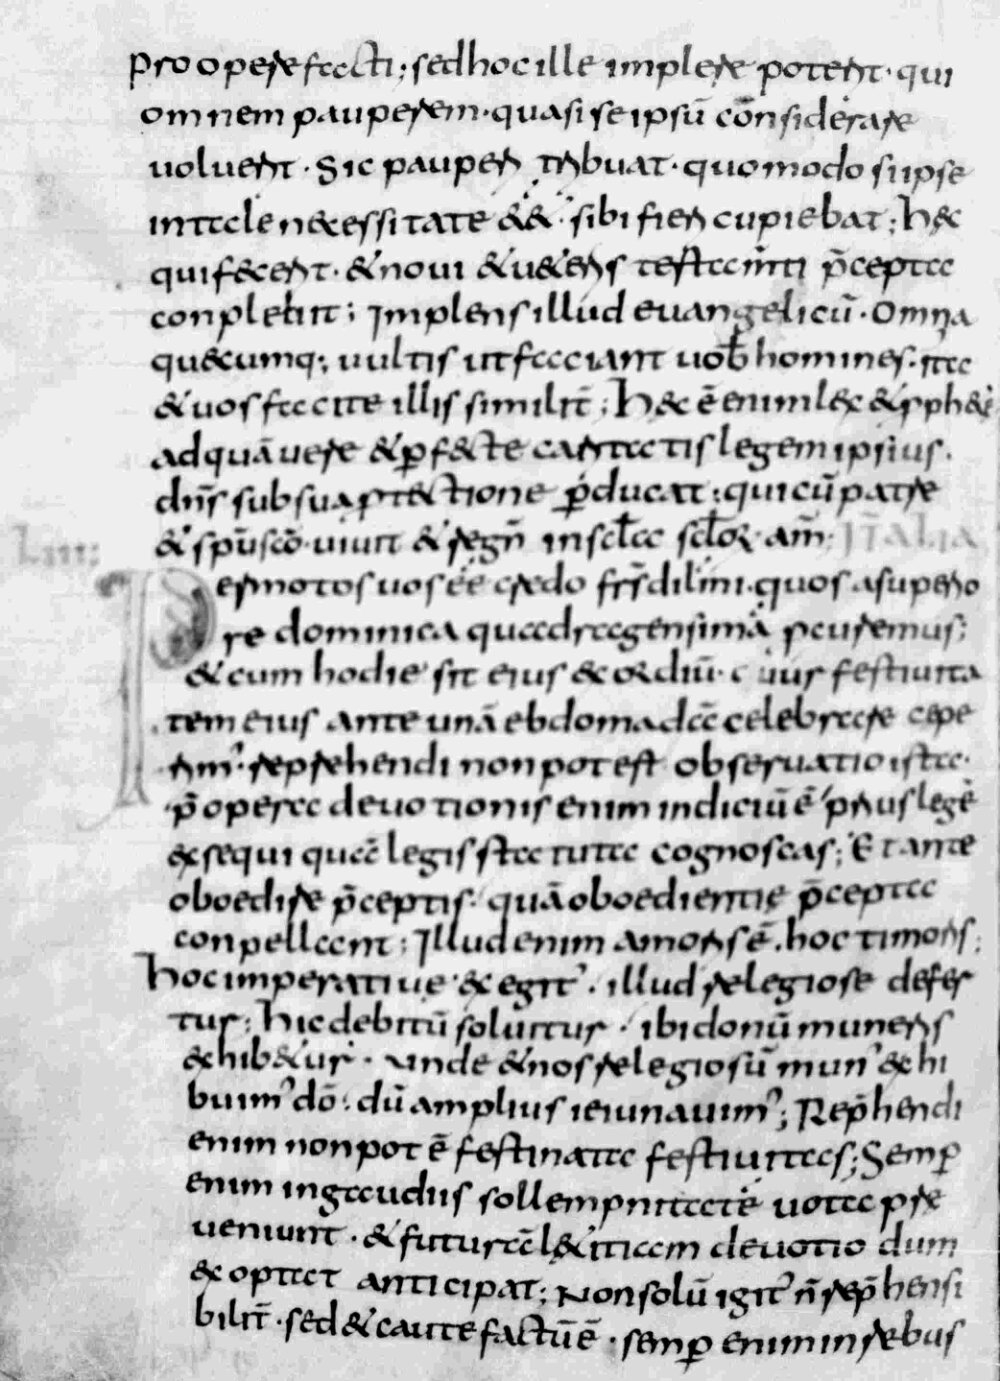 pro opere facti; sed hoc ille implere poterit· qui
omnem pauperem· quasi se ipsū cōnsiderare
uoluerit· Sic pauperi tribuat· quomodo si ipse
in tale necessitate ēēt· sibi fieri cupiebat; Hęc
qui fecerit· & noui & ueteris testamti p̄cepta
conplebit; Implens illud euangelicū· Omnia
quęcumq; uultis ut faciant uob̄ homines· ita
& uos facite illis similit̄; Hęc ē enim lex & pphetę
ad quā uere & ꝑfecte caritatis legem ipsius
dn̄s sub sua protectione ꝑducat; qui cū patre
& sp̄u sc̄o· uiuit & regn̄ in scl̄a scl̄oꝝ· am̄; IT ALIA
LIII;
Permotos uos ēē credo frs̄ dilmi· quos a superio
re dominica quadragensimā peuremus;
& cum hodie sit eius exordiū· cuius festiuita
tem eius ante unā ebdomadā celebrare cepe
rim'· reprehendi non potest obseruatio ista·
p̄opera deuotionis enim indiciū ē prius legē
exsequi quā legis statuta cognoscas; Et ante
oboedire p̄ceptis· quā oboedientię p̄cepta
conpellant; Illud enim amoris ē· hoc timoris;
Hoc imperatiue exegit'· illud relegiose defer
tur; Hic debitū soluitur· ibi donū muneris
exhibetur· unde & nos relegiosū mun' exhi
buim' dō· dū amplius ieiunauim'; Rep̄hendi
enim non pot ē festinata festiuitas; Semꝑ
enim ingaudiis sollempnitatē uota pre
ueniunt· & futurā lętitiam deuotio dum
exoptat anticipat; Non solū igit' n̄ rep̄hensi
bilit̄· sed & caute factū ē· semꝑ enim in rebus